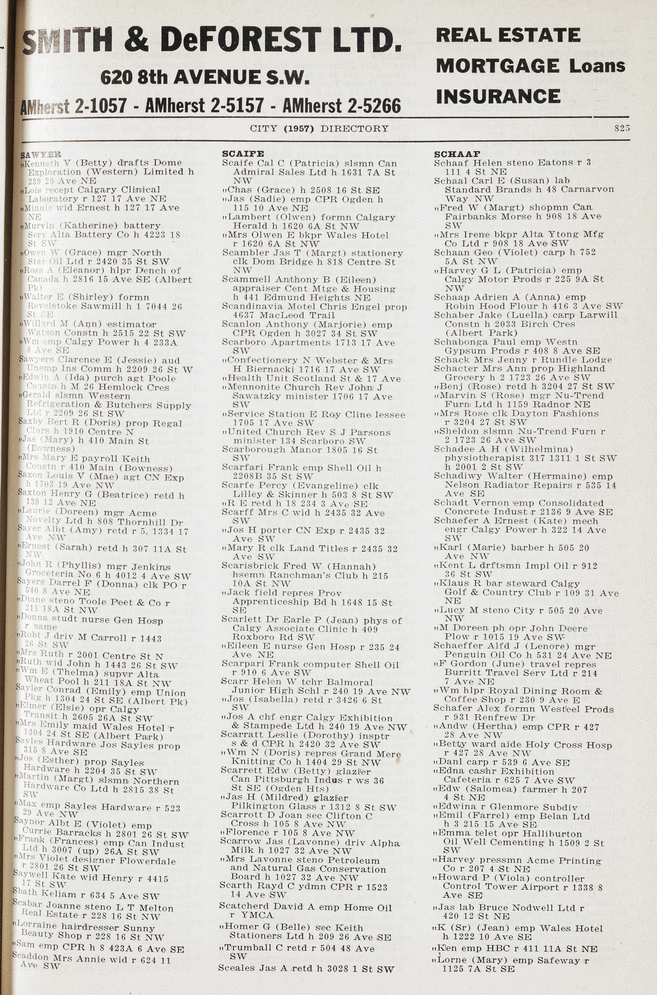 SMITH & DeFOREST LTD.
620 8th AVENUE S.W.
AMherst 2-1057 - AMherst 2-5157 - AMherst 2-5266
REAL ESTATE
MORTGAGE Loans
INSURANCE
CITY (1957) DIRECTORY 825
SAWYER
"Kenneth V (Betty) drafts Dome
Exploration (Western) Limited h
239 20 Ave NE
"Lois recept Calgary Clinical
Laboratory r 127 17 Ave NE
"Minnie wid Ernest h 127 17 Ave
NE
"Murvin (Katherine) battery
Serv Alta Battery Co h 4223 18
St SW
"Owen W (Grace) mgr North
Star Oil Ltd r 2420 35 St SW
"Ross A (Eleanor) hlpr Dench of
Canada h 2816 15 Ave SE (Albert
Pk)
"Walter E (Shirley) formn
Revelstoke Sawmill h 1 7044 26
St SE
"Willard M (Ann) estimator
Watson Constn h 2515 22 St SW
"Wm emp Calgy Power h 4 233A
8 Ave SE
Sawyers Clarence E (Jessie) aud
Unemp Ins Comm h 2209 26 St W
"Edwin A (Ida) purch agt Poole
Constn h M 26 Hemlock Cres
"Gerald slsmn Western
Refrigeration & Butchers Supply
Ltd r 2209 26 St SW
Saxby Bert R (Doris) prop Regal
Clnrs h 1910 Centre N
"Jas (Mary) h 410 Main St
(Bowness)
"Mrs Mary E payroll Keith
Constn r 410 Main (Bowness)
Saxon Louis V (Mae) agt CN Exp
h 1703 19 Ave NW
Saxton Henry G (Beatrice) retd h
139 12 Ave NE
"Laurie (Doreen) mgr Acme
Novelty Ltd h 808 Thornhill Dr
Sayer Albt (Amy) retd r 5, 1334 17
Ave NW
"Ernest (Sarah) retd h 307 11A St
NW
"John R (Phyllis) mgr Jenkins
Groceteria No 6 h 4012 4 Ave SW
Sayers Darrel F (Donna) clk PO r
540 8 Ave NE
"Diane steno Toole Peet & Co r
211 18A St NW
"Donna studt nurse Gen Hosp
r same
"Robt J driv M Carroll r 1443
26 St SW
"Mrs Ruth r 2001 Centre St N
"Ruth wid John h 1443 26 St SW
"Wm E (Thelma) supvr Alta
Wheat Pool h 211 18A St NW
Sayler Conrad (Emily) emp Union
Pkg h 1304 24 St SE (Albert Pk)
"Elmer (Elsie) opr Calgy
Transit h 2605 26A St SW
"Mrs Emily maid Wales Hotel r
1304 24 St SE (Albert Park)
Sayles Hardware Jos Sayles prop
315 8 Ave SE
"Jos (Esther) prop Sayles
Hardware h 2204 35 St SW
"Martin (Margt) slsmn Northern
Hardware Co Ltd h 2815 38 St
SW
"Max emp Sayles Hardware r 523
29 Ave NW
Saynor Albt E (Violet) emp
Currie Barracks h 2801 26 St SW
"Frank (Frances) emp Can Indust
Ltd h 3007 (up) 26A St SW
"Mrs Violet designer Flowerdale
r 2801 26 St SW
Saywell Kate wid Henry r 4415
17 St SW
Sbath Keliam r 634 5 Ave SW
Scabar Joanne steno L T Melton
Real Estate r 228 16 St NW
"Lorraine hairdresser Sunny
Beauty Shop r 228 16 St NW
"Sam emp CPR h 8 423A 6 Ave SE
Scaddon Mrs Annie wid r 624 11
Ave SW
SCAIFE
Scaife Cal C (Patricia) slsmn Can
Admiral Sales Ltd h 1631 7A St
NW
"Chas (Grace) h 2508 16 St SE
"Jas (Sadie) emp CPR Ogden h
115 10 Ave NE
"Lambert (Olwen) formn Calgary
Herald h 1620 6A St NW
"Mrs Olwen E bkpr Wales Hotel
r 1620 6A St NW
Scambler Jas T (Margt) stationery
clk Dom Bridge h 818 Centre St
NW
Scammell Anthony B (Eileen)
appraiser Cent Mtge & Housing
h 441 Edmund Heights NE
Scandinavia Motel Chris Engel prop
4637 MacLeod Trail
Scanlon Anthony (Marjorie) emp
CPR Ogden h 3027 34 St SW
Scarboro Apartments 1713 17 Ave
SW
"Confectionery N Webster & Mrs
H Biernacki 1716 17 Ave SW
"Health Unit Scotland St & 17 Ave
"Mennonite Church Rev John J
Sawatzky minister 1706 17 Ave
SW
"Service Station E Roy Cline lessee
1705 17 Ave SW
"United Church Rev S J Parsons
minister 134 Scarboro SW
Scarborough Manor 1805 16 St
SW
Scarfari Frank emp Shell Oil h
2208B 35 St SW
Scarfe Percy (Evangeline) clk
Lilley & Skinner h 503 8 St SW
"R E retd h 18 234 3 Ave SE
Scarff Mrs C wid h 2435 32 Ave
SW
"Jos H porter CN Exp r 2435 32
Ave SW
"Mary R clk Land Titles r 2435 32
Ave SW
Scarisbrick Fred W (Hannah)
hsemn Ranchman's Club h 215
10A St NW
"Jack field repres Prov
Apprenticeship Bd h 1648 15 St
SE
Scarlett Dr Earle P (Jean) phys of
Calgary Associate Clinic h 409
Roxboro Rd SW
"Eileen E nurse Gen Hosp r 235 24
Ave NE
Scarpari Frank computer Shell Oil
r 910 6 Ave SW
Scarr Helen W tchr Balmoral
Junior High Schl r 240 19 Ave NW
"Jos (Isabella) retd r 3426 6 St
SW
"Jos A chf engr Calgy Exhibition
& Stampede Ltd h 240 19 Ave NW
Scarratt Leslie (Dorothy) insptr
s & d CPR h 2420 32 Ave SW
"Wm N (Doris) repres Grand Mere
Knitting Co h 1404 29 St NW
Scarrett Edw (Betty) glazier
Can Pittsburgh Indus r ws 36
St SE (Ogden Hts)
"Jas H (Mildred) glazier
Pilkington Glass r 1312 8 St SW
Scarrott D Joan sec Clifton C
Cross h 105 8 Ave NW
"Florence r 105 8 Ave NW
Scarrow Jas (Lavonne) driv Alpha
Milk h 1027 32 Ave NW
"Mrs Lavonne steno Petroleum
and Natural Gas Conservation
Board h 1027 32 Ave NW
Scarth Rayd C ydmn CPR r 1523
14 Ave SW
Scatcherd David A emp Home Oil
r YMCA
"Homer G (Belle) sec Keith
Stationers Ltd h 209 26 Ave SE
"Trumball C retd r 504 48 Ave
SW
Sceales Jas A retd h 3028 1 St SW
SCHAAF
Schaaf Helen steno Eatons r 3
111 4 St NE
Schaal Carl E (Susan) lab
Standard Brands h 48 Carnarvon
Way NW
"Fred W (Margt) shopmn Can
Fairbanks Morse h 908 18 Ave
SW
"Mrs Irene bkpr Alta Ytong Mfg
Co Ltd r 908 18 Ave SW
Schaan Geo (Violet) carp h 752
5A St NW
"Harvey G L (Patricia) emp
Calgy Motor Prods r 225 9A St
NW
Schaap Adrien A (Anna) emp
Robin Hood Flour h 416 3 Ave SW
Schaber Jake (Luella) carp Larwill
Constn h 2033 Birch Cres
(Albert Park)
Schabonga Paul emp Westn
Gypsum Prods r 408 8 Ave SE
Schack Mrs Jenny r Rundle Lodge
Schacter Mrs Ann prop Highland
Grocery h 2 1723 26 Ave SW
"Benj (Rose) retd h 3204 27 St SW
"Marvin S (Rose) mgr Nu-Trend
Furn Ltd h 1159 Radnor NE
"Mrs Rose clk Dayton Fashions
r 3204 27 St SW
"Sheldon slsmn Nu-Trend Furn r
2 1723 26 Ave SW
Schadee A H (Wilhelmina)
physiotherapist 317 1311 1 St SW
h 2001 2 St SW
Schadiwy Walter (Hermaine) emp
Nelson Radiator Repairs r 535 14
Ave SE
Schadt Vernon emp Consolidated
Concrete Indust r 2136 9 Ave SE
Schaefer A Ernest (Kate) mech
engr Calgy Power h 322 14 Ave
SW
"Karl (Marie) barber h 505 20
Ave NW
"Kent L drftsmn Impl Oil r 912
36 St SW
"Klaus R bar steward Calgy
Golf & Country Club r 109 31 Ave
NE
"Lucy M steno City r 505 20 Ave
NW
"M Doreen ph opr John Deere
Plow r 1015 19 Ave SW
Schaeffer Alfd J (Lenore) mgr
Penguin Oil Co h 531 24 Ave NW
"F Gordon (June) travel repres
Burritt Travel Serv Ltd r 214
7 Ave NE
"Wm hlpr Royal Dining Room &
Coffee Shop r 230 9 Ave E
Schafer Alex formn Westeel Prods
r 931 Renfrew Dr
"Andw (Hertha) emp CPR r 427
28 Ave NW
"Betty ward aide Holy Cross Hosp
r 427 28 Ave NW
"Danl carp r 539 6 Ave SE
"Edna cashr Exhibition
Cafeteria r 625 7 Ave SW
"Edw (Salomea) farmer h 207
4 St NE
"Edwina r Glenmore Subdiv
"Emil (Farrel) emp Belan Ltd
h 3 215 15 Ave SE
"Emma telet opr Halliburton
Oil Well Cementing h 1509 2 St
SW
"Harvey pressmn Acme Printing
Co r 207 4 St NE
"Howard P (Viola) controller
Control Tower Airport r 1338 8
Ave SE
"Jas lab Bruce Nodwell Ltd r
420 12 St NE
"K (Sr) (Jean) emp Wales Hotel
h 1222 10 Ave SE
"Ken emp HBC r 411 11A St NE
"Lorne (Mary) emp Safeway r
1125 7A St SE